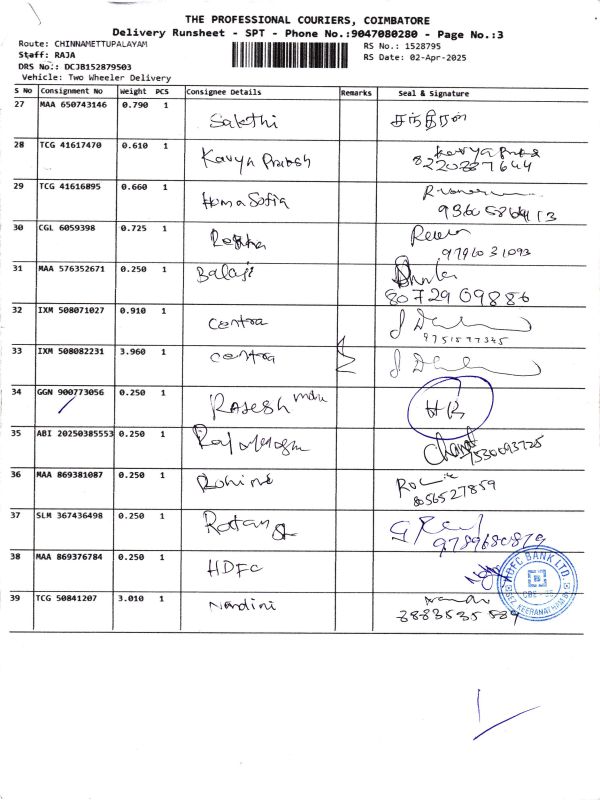 THE PROFESSIONAL COURIERS, COIMBATORE
Delivery Runsheet - SPT - Phone No.:9047080280 - Page No.:3
Route: CHINNAMETTUPALAYAM
RS No.: 1528795
Staff: RAJA
RS Date: 02-Apr-2025
DRS No.: DCJB152879503
Vehicle: Two Wheeler Delivery
S No Consignment No Weight PCS Consignee Details Remarks Seal & Signature
27 MAA 650743146 0.790 1 Sakthi
28 TCG 41617470 0.610 1 Kavya Prakash
8220287644
29 TCG 41616895 0.660 1 Hema Sofia
30 CGL 6059398 0.725 1
9796031093
31 MAA 576352671 0.250 1 Balaji
8072909886
32 IXM 508071027 0.910 1 contra
33 IXM 508082231 3.960 1 contra
34 GGN 900773056 0.250 1 RAJESH
35 ABI 20250385553 0.250 1
36 MAA 869381087 0.250 1 Rohini
8056527859
37 SLM 367436498 0.250 1 Ratan
9789680879
38 MAA 869376784 0.250 1 HDFC
HDFC BANK LTD.
39 TCG 50841207 3.010 1 Nandini